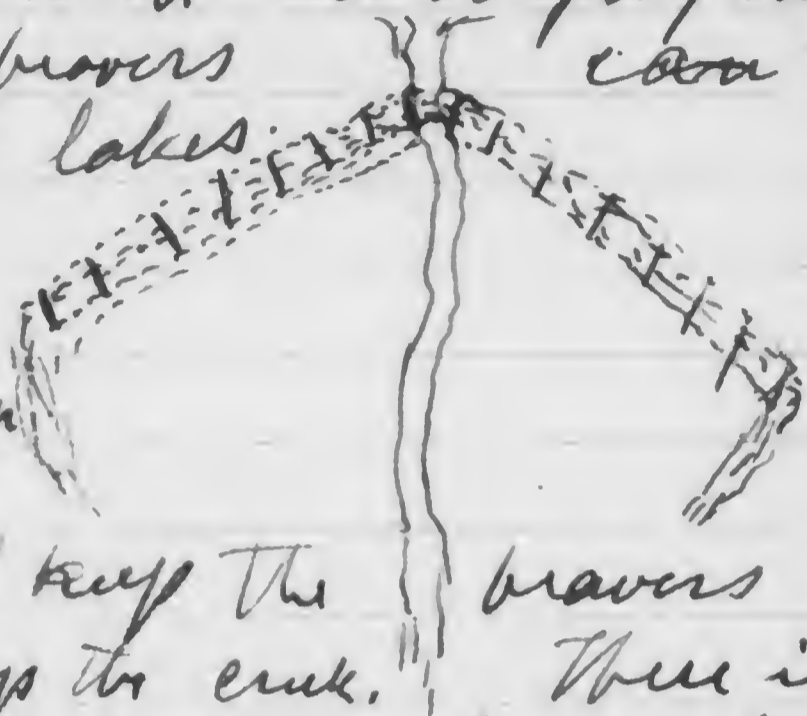 beavers
lakes.
keep the beavers
the creek. There